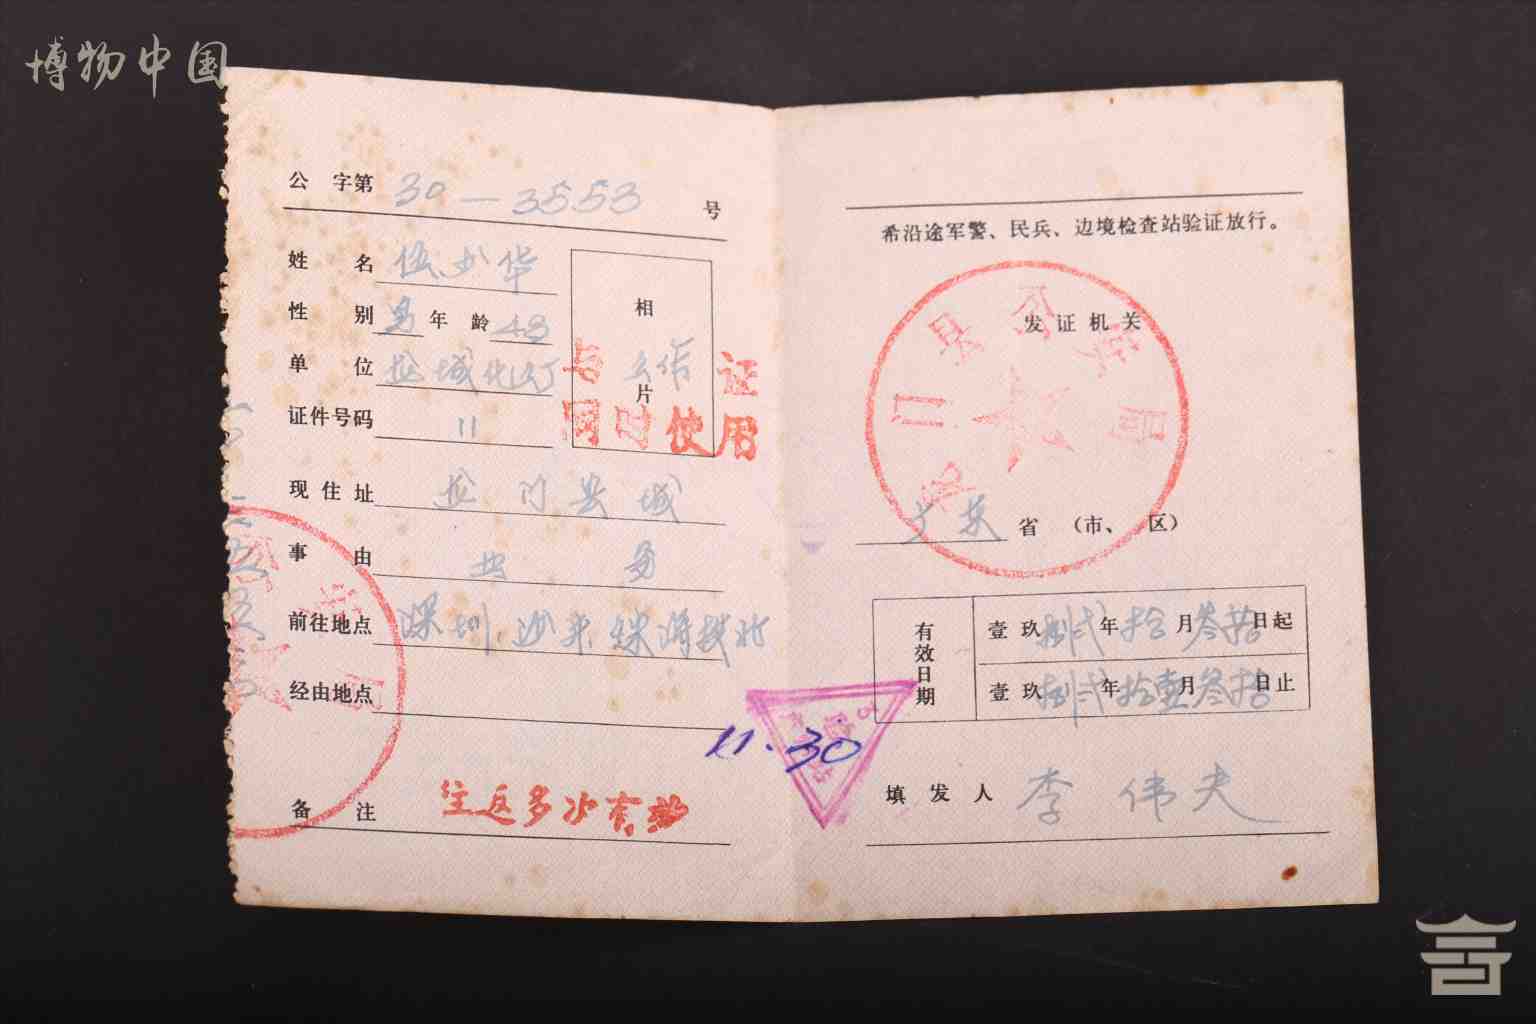 博物中国
公 字第 30—3553 号
姓 名 伍少华
性 别 男 年 龄 48
单 位
证件号码 11
相
片
与工作证
同时使用
现 住 址 龙门县城
事 由 公务
前往地点 深圳、沙禾
经由地点
备 注 往返多次有效
希沿途军警、民兵、边境检查站验证放行。
发 证 机 关
龙门县公安局
广东 省 (市、 区)
有效日期
壹 玖 捌贰 年 拾 月 叁拾 日起
壹 玖 捌贰 年 拾壹 月 叁拾 日止
11.30
填 发 人 李伟夫